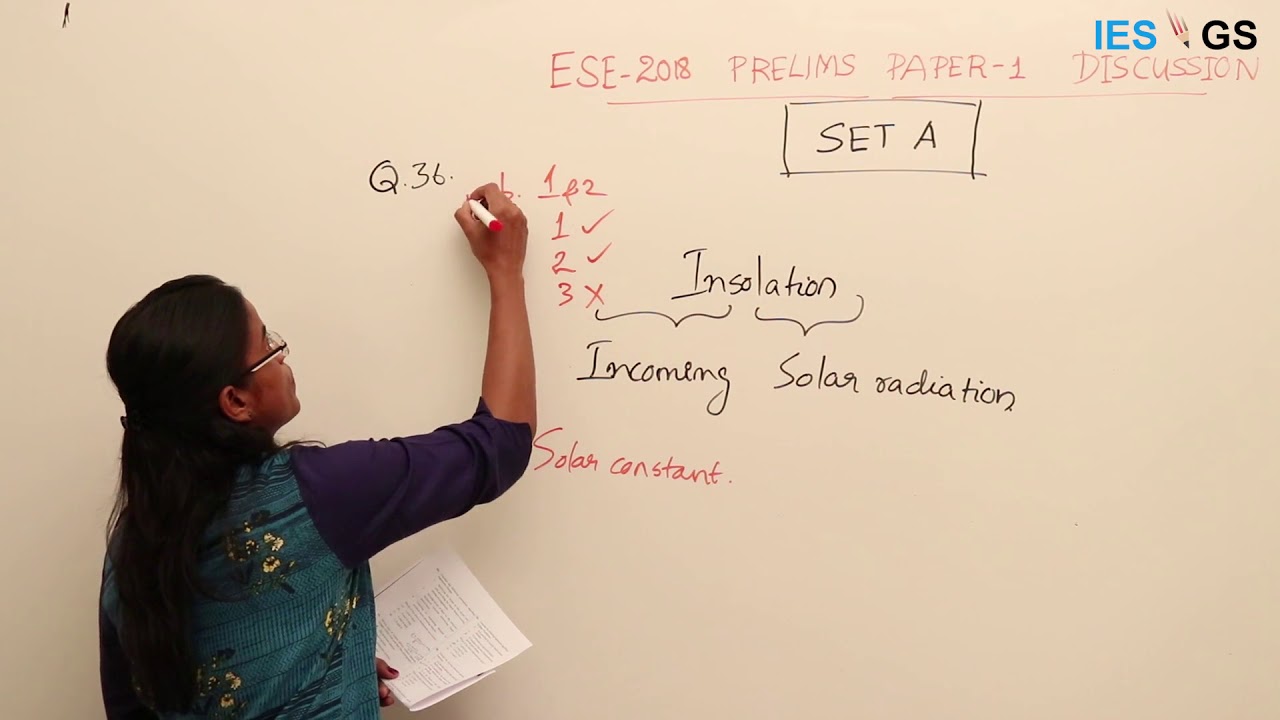 IES GS
ESE-2018 PRELIMS PAPER-1 DISCUSSION
SET A
Q.36. b. 1 & 2
1 ✓
2 ✓
3 X
Insolation
Incoming Solar radiation
Solar constant.